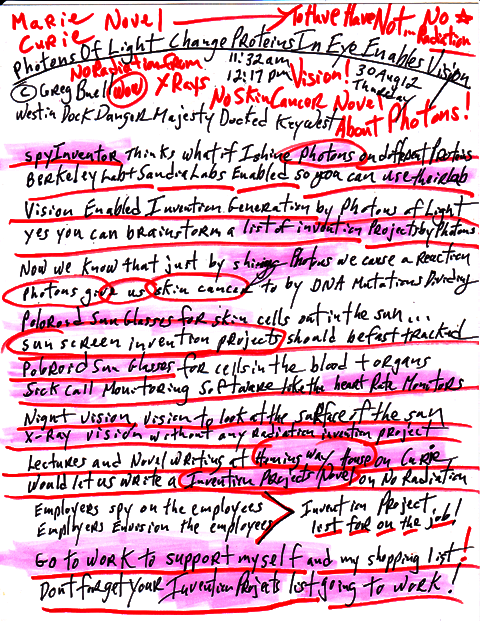 Marie Novel To Have Have Not No
Curie in Radiation
Photons Of Light Change Proteins In Eye Enables Vision
No Radiation From 11:32 am Vision! 30 Aug 12
© Greg Buell Wow X Rays 12:17 pm Thursday
No Skin Cancer Novel
Westin Dock Danger Majesty Docked Key West About Photons!
Spy Inventor Thinks what if I shine Photons on different Proteins
Berkeley Lab + Sandia Labs Enabled so you can use their lab
Vision Enabled Invention Generation by Photons of Light
yes you can brainstorm a list of invention Projects by Photons
Now we know that just by shining Photons we cause a Reaction
Photons give us skin cancer to by DNA Mutations Dividing
Poloroid Sun Glasses for skin cells out in the sun...
Sun screen invention projects should be fast tracked
Poloroid Sun Glasses for cells in the blood + organs
Sick Call Monitoring Software like the heart Rate Monitors
Night vision, vision to look at the surface of the sun
X-Ray vision without any Radiation invention project
Lectures and Novel writing at Hemingway House on Curie
Would let us write a Invention Projects Novel on No Radiation
Employers spy on the employees Invention Project
Employers Envision the employees list for on the job!
Go to work to support myself and my shopping list!
Dont forget your Invention Projects list going to work!